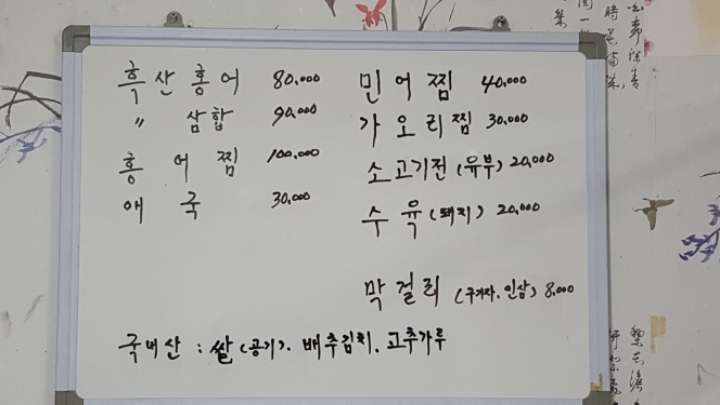 흑산홍어 80,000
〃 삼합 90,000
홍어찜 100,000
애국 30,000
민어찜 40,000
가오리찜 30,000
소고기전 (유부) 20,000
수육 (돼지) 20,000
막걸리 (구기자. 인삼) 8,000
국내산 : 쌀 (공기). 배추김치. 고추가루